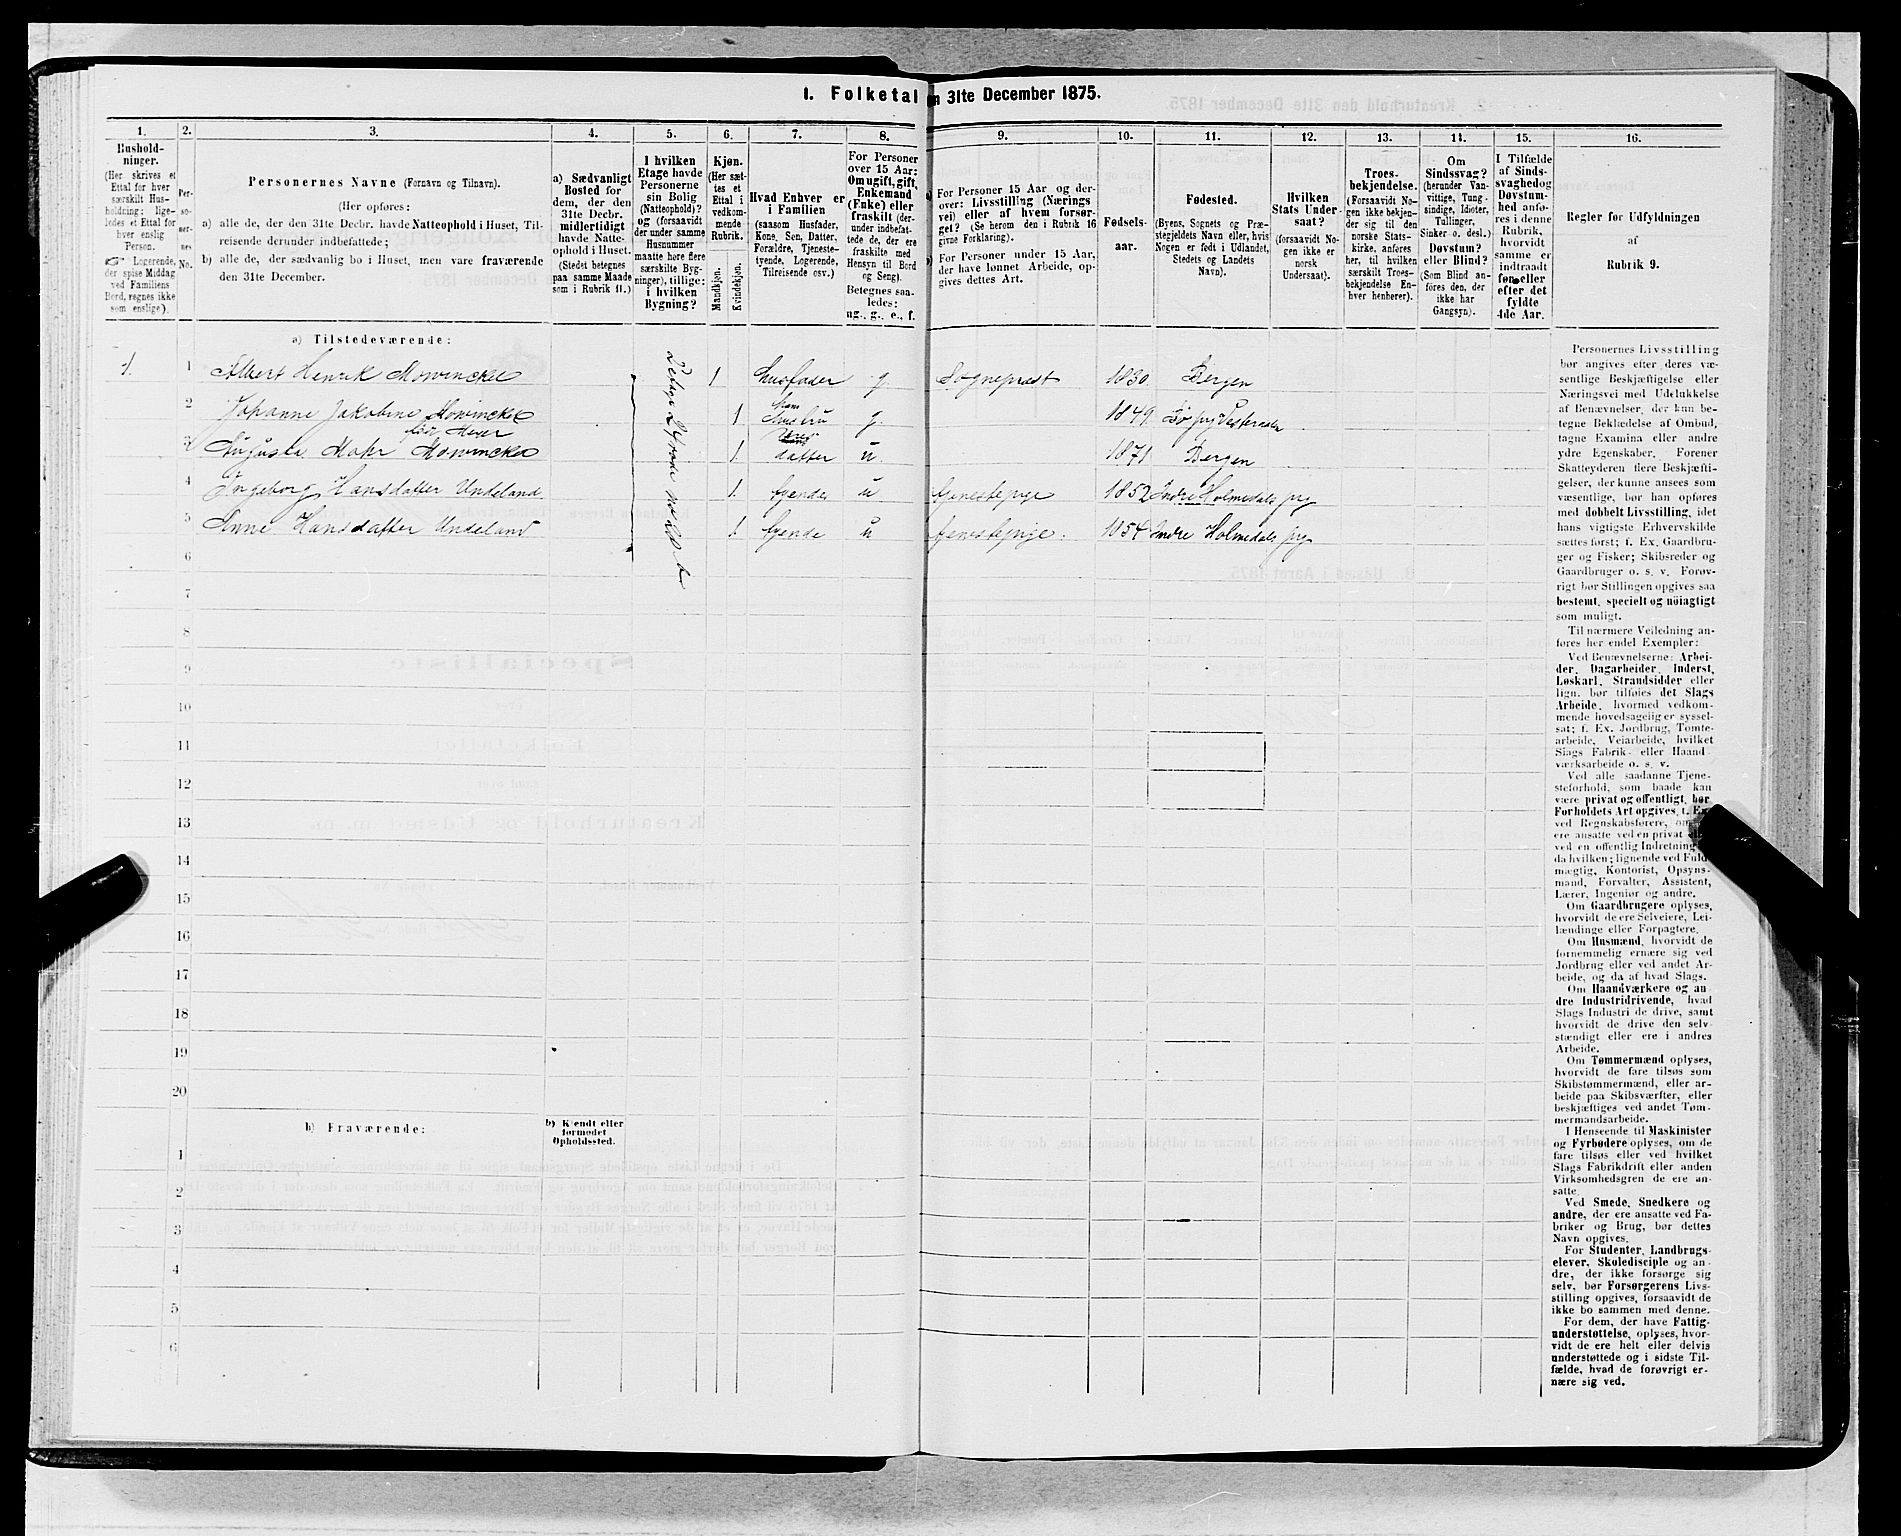 1. Folketal
n 31te December 1875.
1.
2.
3.
4.
5.
6.
7.
8.
9.
10.
11.
12.
13.
14.
15.
16.
Hushold-
ninger.
(Her skrives et
Ettal for hver
særskilt Hus-
holdning; lige-
ledes et Ettal for
hver enslig
Person.
Logerende,
der spise Middag
ved Familiens
Bord, regnes ikke
som enslige).
Per-
so-
ner-
nes
No.
Personernes Navne (Fornavn og Tilnavn).
(Her opføres:
a) alle de, der den 31te Decbr. havde Natteophold i Huset, Til-
reisende derunder indbefattede;
b) alle de, der sædvanlig bo i Huset, men vare fraværende
den 31te December.
a) Sædvanligt
Bosted for
dem, der den
31te Decbr.
midlertidigt
havde Natte-
ophold i Huset.
(Stedet betegnes
paa samme Maade
som i Rubrik 11.)
I hvilken
Etage havde
Personerne
sin Bolig
(Natteophold)?
og (forsaavidt
der under samme
Husnummer
maatte høre flere
særskilte Byg-
ninger), tillige:
i hvilken
Bygning?
Kjøn.
(Her sæt-
tes et
Ettal i
vedkom-
mende
Rubrik.
Mandkjøn.
Kvindekjøn.
Hvad Enhver er
i Familien
(saasom Husfader,
Kone, Søn, Datter,
Forældre, Tjeneste-
tyende, Logerende,
Tilreisende osv.)
For Personer
over 15 Aar:
Om ugift, gift,
Enkemand
(Enke) eller
fraskilt (der-
under indbefat-
tede de, der ere
fraskilte med
Hensyn til Bord
og Seng).
Betegnes saa-
ledes:
ug., g., e., f.
a) For Personer 15 Aar og der-
over: Livsstilling (Nærings
vei) eller af hvem forsør-
get? (Se herom den i Rubrik 16
givne Forklaring).
b) For Personer under 15 Aar,
der have lønnet Arbeide, op-
gives dettes Art.
Fødsels-
aar.
Fødested.
(Byens, Sognets og Præ-
stegjeldets Navn eller, hvis
Nogen er født i Udlandet,
Stedets og Landets
Navn).
Hvilken
Stats Under-
saat?
(forsaavidt No-
gen ikke er
norsk
Undersaat).
Troes-
bekjendelse.
(Forsaavidt No-
gen ikke bekjen-
der sig til den
norske Stats-
kirke, anføres
her, til hvilken
særskilt Troes-
bekjendelse En-
hver henhører).
Om
Sindssvag?
(herunder Van-
vittige, Tung-
sindige, Idioter,
Tullinger,
Sinker o. desl.)
Døvstum?
eller Blind?
(Som Blind an-
føres den, der
ikke har
Gangsyn).
I Tilfælde
af Sinds-
svaghed og
Døvstum-
hed anfø-
res i denne
Rubrik,
hvorvidt
samme er
indtraadt
før eller
efter det
fyldte
4de Aar.
Regler for Udfyldningen
af
Rubrik 9.
a) Tilstedeværende:
1. 1 Albert Henrik Mowinckel 1 Husfader g. Sognepræst 1830. Bergen
2 Johanne Jakobine Mowinckel 1 Hustru g. 1849.
født Meyer
3 Augusta Mohr Mowinckel 1. datter u. 1871 Bergen
4 Ingeborg Hansdatter Undeland 1. tjender u tjenestepige 1852 Indre Holmedals prg
5 Anne Hansdatter Undeland 1. tjende u tjenestepige. 1854 Indre Holmedals prg
6
7
8
9
10
11
12
13
14
15
16
17
18
19
20
b) Fraværende:
b) Kjendt eller
formodet
Opholdssted.
1
2
3
4
5
6
Personernes Livsstilling
bør angives efter deres væ-
sentlige Beskjæftigelse eller
Næringsvei med Udelukkelse
af Benævnelser, der kun be-
tegne Beklædelse af Ombud,
tagne Examina eller andre
ydre Egenskaber. Forener
Skatteyderen flere Beskjæfti-
gelser, der kunne ansees som
væsentlige, bør han opføres
med dobbelt Livsstilling, idet
hans vigtigste Erhvervskilde
sættes først; f. Ex. Gaardbru-
ger og Fisker; Skibsreder og
Gaardbruger o. s. v. Forøv-
rigt bør Stillingen opgives saa
bestemt, specielt og nöiagtigt
som muligt.
Til nærmere Veiledning an-
føres her endel Exempler:
Ved Benævnelserne: Arbei-
der, Dagarbeider, Inderst,
Løskarl, Strandsidder eller
lign. bør tilføies det Slags
Arbeide, hvormed vedkom-
mende hovedsagelig er syssel-
sat; f. Ex. Jordbrug, Tomte-
arbeide, Veiarbeide, hvilket
Slags Fabrik- eller Haand-
værksarbeide o. s. v.
Ved alle saadanne Tjene-
steforhold, som baade kan
være privat og offentligt, bør
Forholdets Art opgives, f. Ex.
ved Regnskabsførere, om
ere ansatte ved en privat
ved en offentlig Indretning
da hvilken; lignende ved Fuld-
mægtig, Kontorist, Opsyns-
mand, Forvalter, Assistent,
Lærer, Ingeniør og andre.
Om Gaardbrugere oplyses,
hvorvidt de ere Selveiere, Lei-
lændinge eller Forpagtere.
Om Husmænd, hvorvidt de
fornemmelig ernære sig ved
Jordbrug eller ved andet Ar-
beide, og da af hvad Slags.
Om Haandværkere og an
dre Industridrivende, hvad
Slags Industri de drive, samt
hvorvidt de drive den selv-
stændigt eller ere i andres
Arbeide.
Om Tømmermænd oplyses,
hvorvidt de fare tilsøs som
Skibstømmermænd, eller ar-
beide paa Skibsværfter, eller
beskjæftiges ved andet Tøm-
mermandsarbeide.
I Henseende til Maskinister
og Fyrbødere oplyses, om de
fare tilsøs eller ved hvilket
Slags Fabrikdrift eller anden
Virksomhedsgren de ere an-
satte.
Ved Smede, Snedkere og
andre, der ere ansatte ved Fa-
briker og Brug, bør dettes
Navn opgives.
For Studenter, Landbrugs-
elever, Skoledisciple og an-
dre, der ikke forsørge sig
selv, bør Forsørgerens Livs-
stilling opgives, forsaavidt de
ikke bo sammen med denne.
For dem, der have Fattig-
understøttelse, oplyses, hvor-
vidt de ere helt eller delvis
understøttede og i sidste Til-
fælde, hvad de forøvrigt er-
nære sig ved.